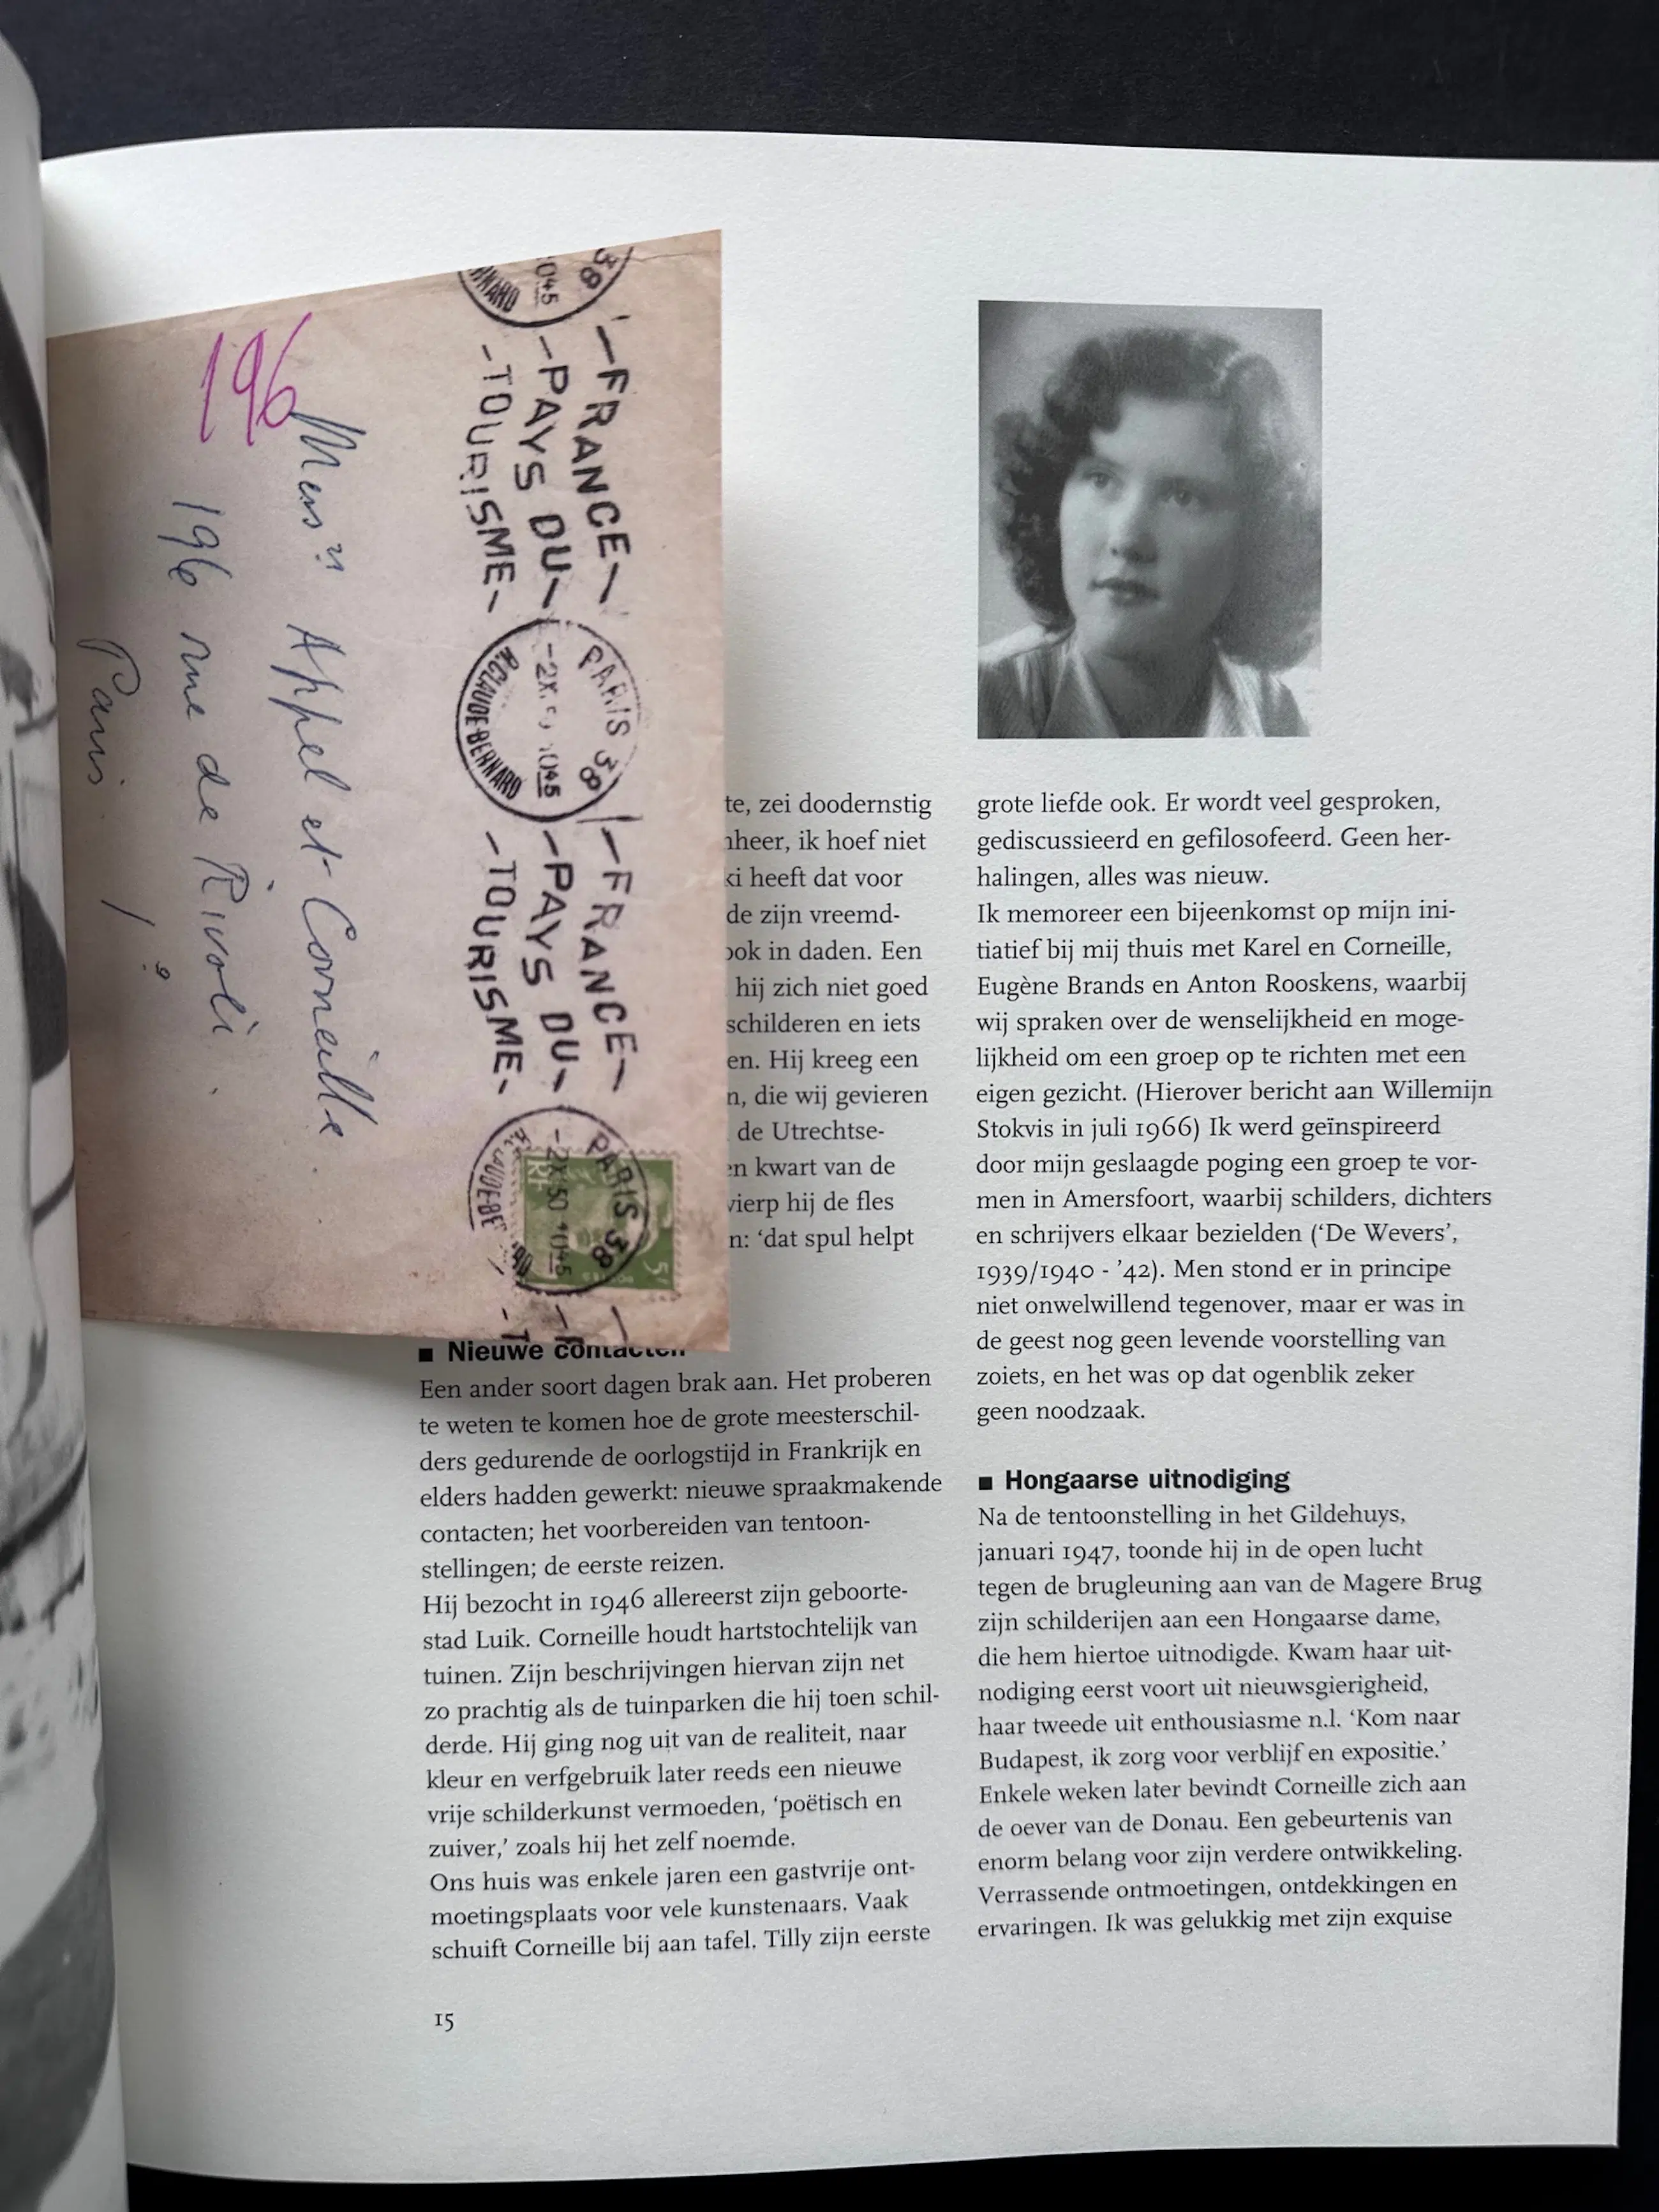 196
Mensrs Appel et Corneille
196 rue de Rivoli.
Paris 1?
-FRANCE-
-PAYS DU-
-TOURISME-
PARIS 38
-2X. 1045
R.CLAUDE-BERNARD
-FRANCE-
-PAYS DU-
-TOURISME-
PARIS 38
-2X 50 1045
RF
POSTES
5F
te, zei doodernstig
nheer, ik hoef niet
ki heeft dat voor
de zijn vreemd-
ook in daden. Een
hij zich niet goed
schilderen en iets
en. Hij kreeg een
n, die wij gevieren
de Utrechtse-
en kwart van de
wierp hij de fles
n: ‘dat spul helpt
■ Nieuwe contacten
Een ander soort dagen brak aan. Het proberen
te weten te komen hoe de grote meesterschil-
ders gedurende de oorlogstijd in Frankrijk en
elders hadden gewerkt: nieuwe spraakmakende
contacten; het voorbereiden van tentoon-
stellingen; de eerste reizen.
Hij bezocht in 1946 allereerst zijn geboorte-
stad Luik. Corneille houdt hartstochtelijk van
tuinen. Zijn beschrijvingen hiervan zijn net
zo prachtig als de tuinparken die hij toen schil-
derde. Hij ging nog uit van de realiteit, naar
kleur en verfgebruik later reeds een nieuwe
vrije schilderkunst vermoeden, ‘poëtisch en
zuiver,’ zoals hij het zelf noemde.
Ons huis was enkele jaren een gastvrije ont-
moetingsplaats voor vele kunstenaars. Vaak
schuift Corneille bij aan tafel. Tilly zijn eerste
grote liefde ook. Er wordt veel gesproken,
gediscussieerd en gefilosofeerd. Geen her-
halingen, alles was nieuw.
Ik memoreer een bijeenkomst op mijn ini-
tiatief bij mij thuis met Karel en Corneille,
Eugène Brands en Anton Rooskens, waarbij
wij spraken over de wenselijkheid en moge-
lijkheid om een groep op te richten met een
eigen gezicht. (Hierover bericht aan Willemijn
Stokvis in juli 1966) Ik werd geïnspireerd
door mijn geslaagde poging een groep te vor-
men in Amersfoort, waarbij schilders, dichters
en schrijvers elkaar bezielden (‘De Wevers’,
1939/1940 - ’42). Men stond er in principe
niet onwelwillend tegenover, maar er was in
de geest nog geen levende voorstelling van
zoiets, en het was op dat ogenblik zeker
geen noodzaak.
■ Hongaarse uitnodiging
Na de tentoonstelling in het Gildehuys,
januari 1947, toonde hij in de open lucht
tegen de brugleuning aan van de Magere Brug
zijn schilderijen aan een Hongaarse dame,
die hem hiertoe uitnodigde. Kwam haar uit-
nodiging eerst voort uit nieuwsgierigheid,
haar tweede uit enthousiasme n.l. ‘Kom naar
Budapest, ik zorg voor verblijf en expositie.’
Enkele weken later bevindt Corneille zich aan
de oever van de Donau. Een gebeurtenis van
enorm belang voor zijn verdere ontwikkeling.
Verrassende ontmoetingen, ontdekkingen en
ervaringen. Ik was gelukkig met zijn exquise
15